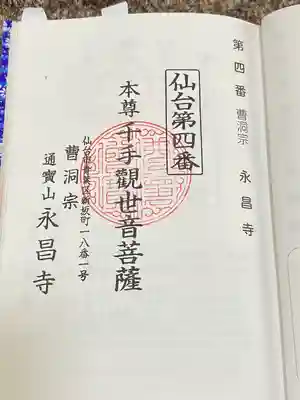 第四番 曹洞宗 永昌寺
仙台第四番
本尊 千手觀世音菩薩
仙台市青葉区新坂町一八番一号
曹洞宗
通寳山 永昌寺